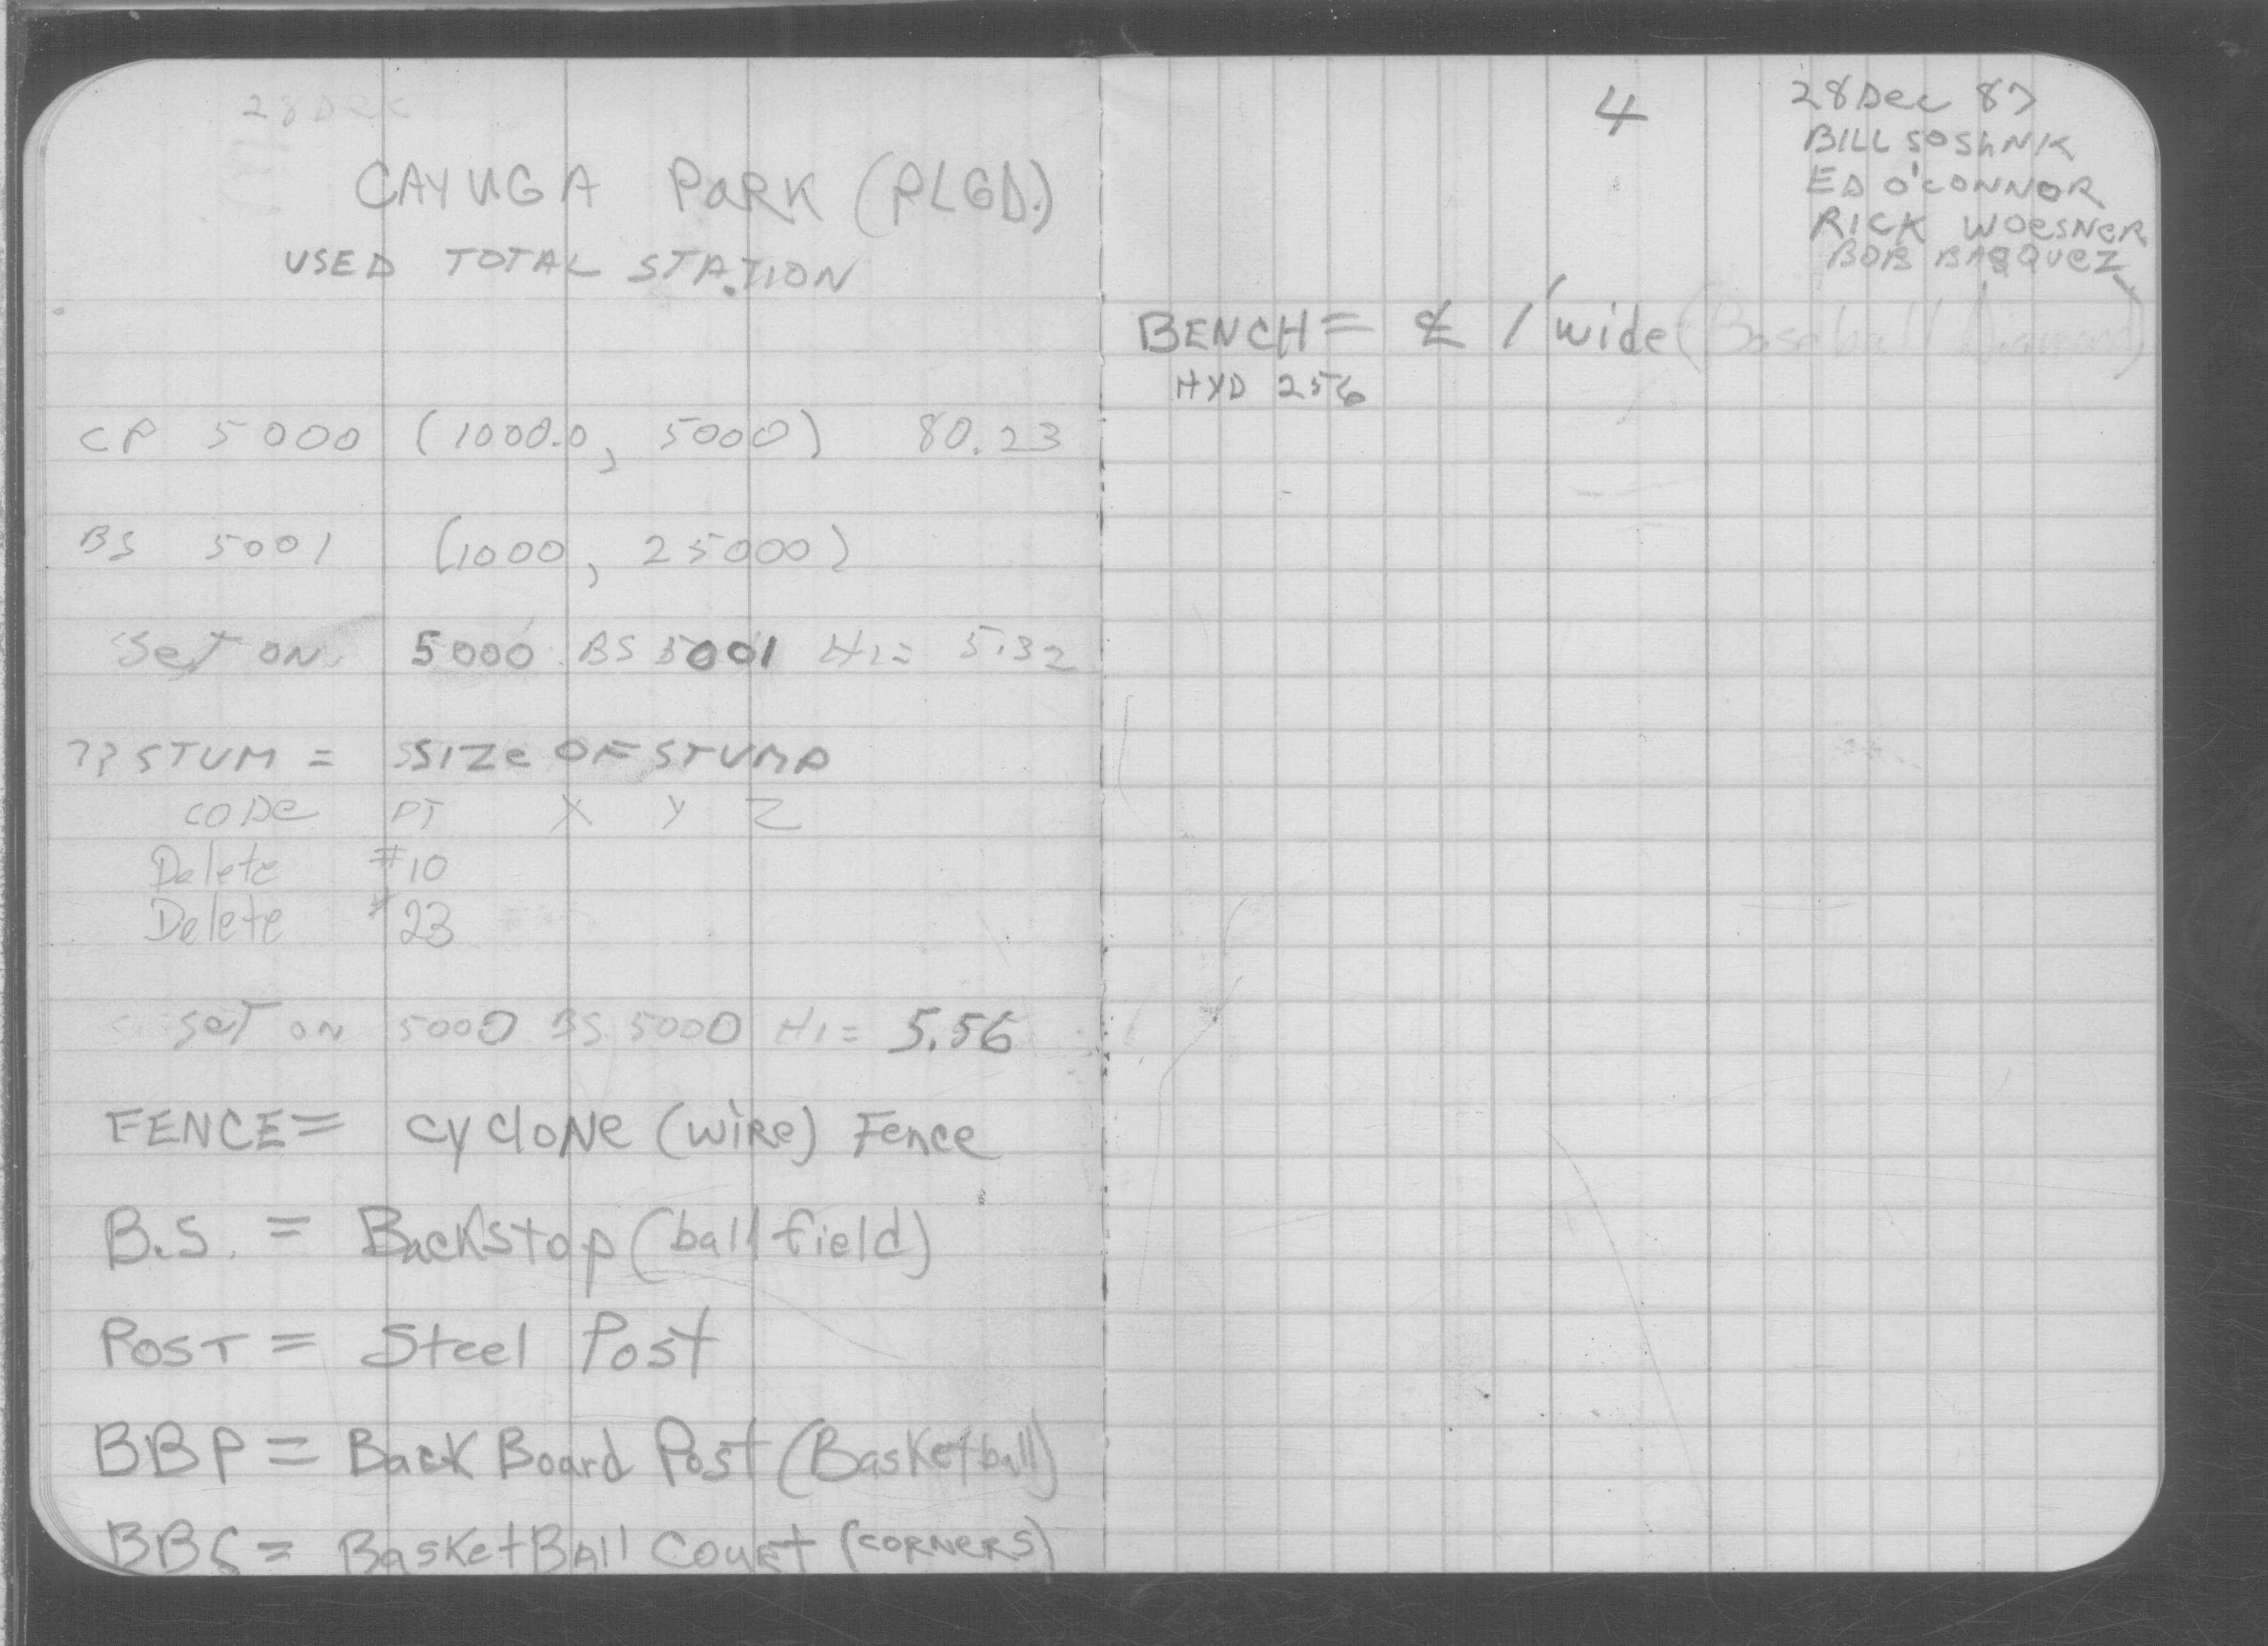 28 Dec
CAYUGA PARK (PLGD.)
USED TOTAL STATION
CP 5000 (1000.0, 5000) 80.23
BS 5001 (1000, 25000)
Set ON 5000 BS 5001 HI= 5.32
??STUM = SIZE OF STUMP
CODE PT X Y Z
Delete #10
Delete #23
Set ON 5000 BS 5000 HI= 5.56
FENCE= CYCLONE (WIRE) Fence
B.S. = Backstop (ball field)
POST = Steel Post
BBP = Back Board Post (Basketball)
BBC = BasketBall Court (CORNERS)
4
28 Dec 87
BILL SOSHNIK
ED O'CONNOR
RICK WOESNER
BOB BASQUEZ
BENCH= ℄ 1' wide (Baseball Diamond)
HYD 256